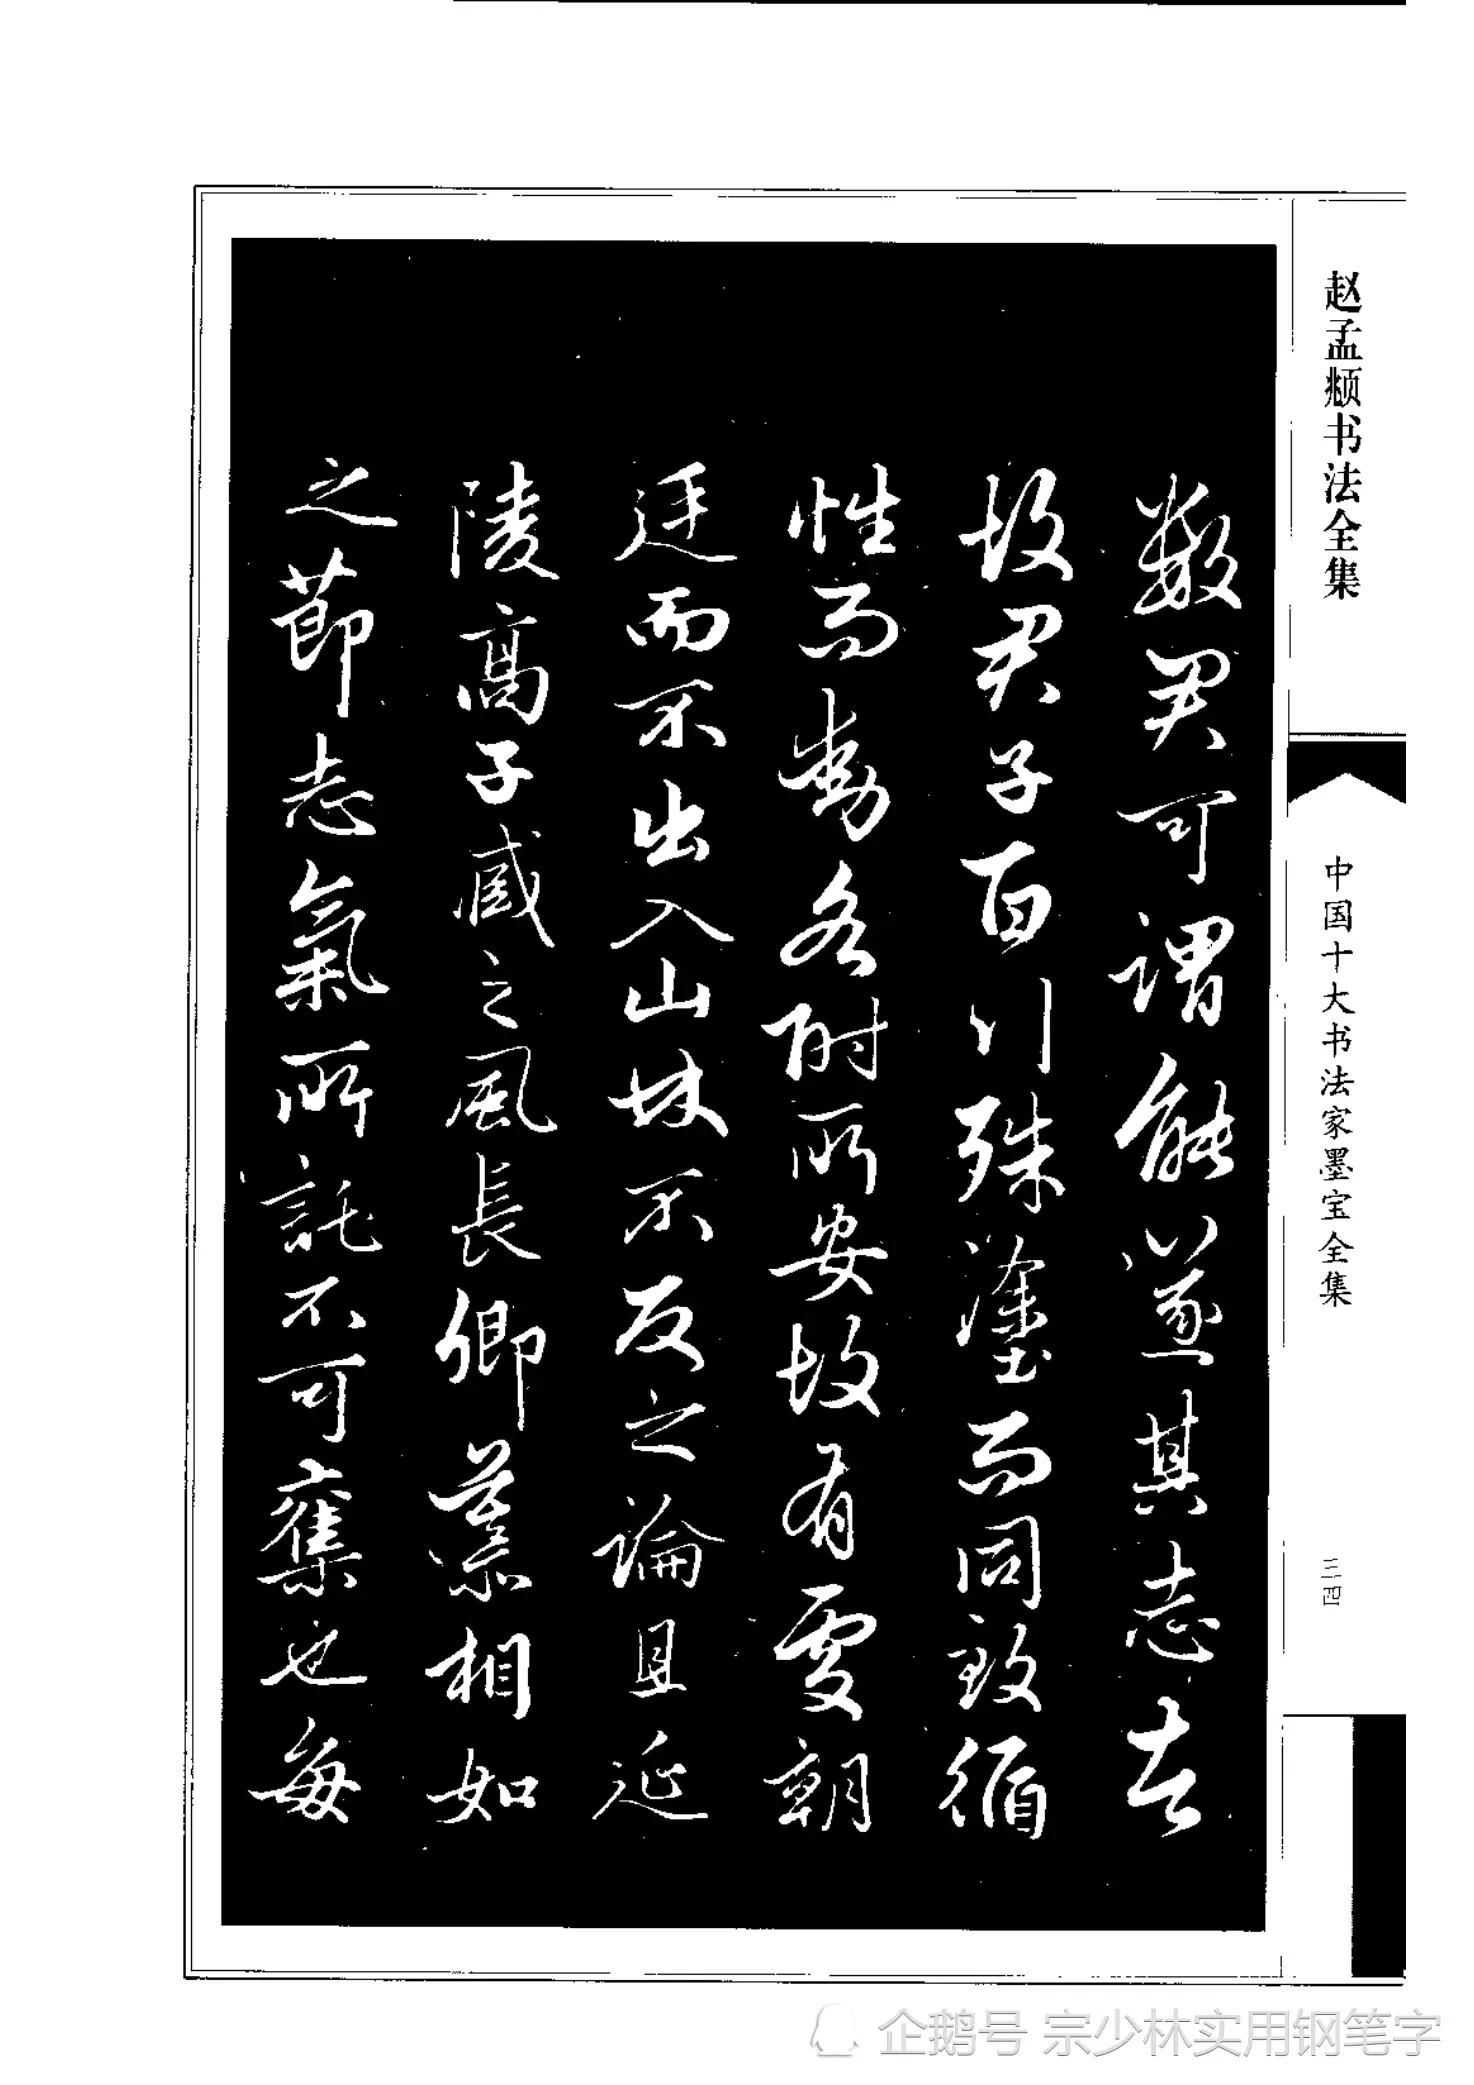 赵孟頫书法全集
中国十大书法家墨宝全集
三四
數君可謂能遂其志者
故君子百行殊塗而同致循
性而動各附所安故有處朝
廷而不出入山林不反之論且延
陵高子臧之風長卿慕相如
之節志氣所託不可奪也每
企鹅号 宗少林实用钢笔字